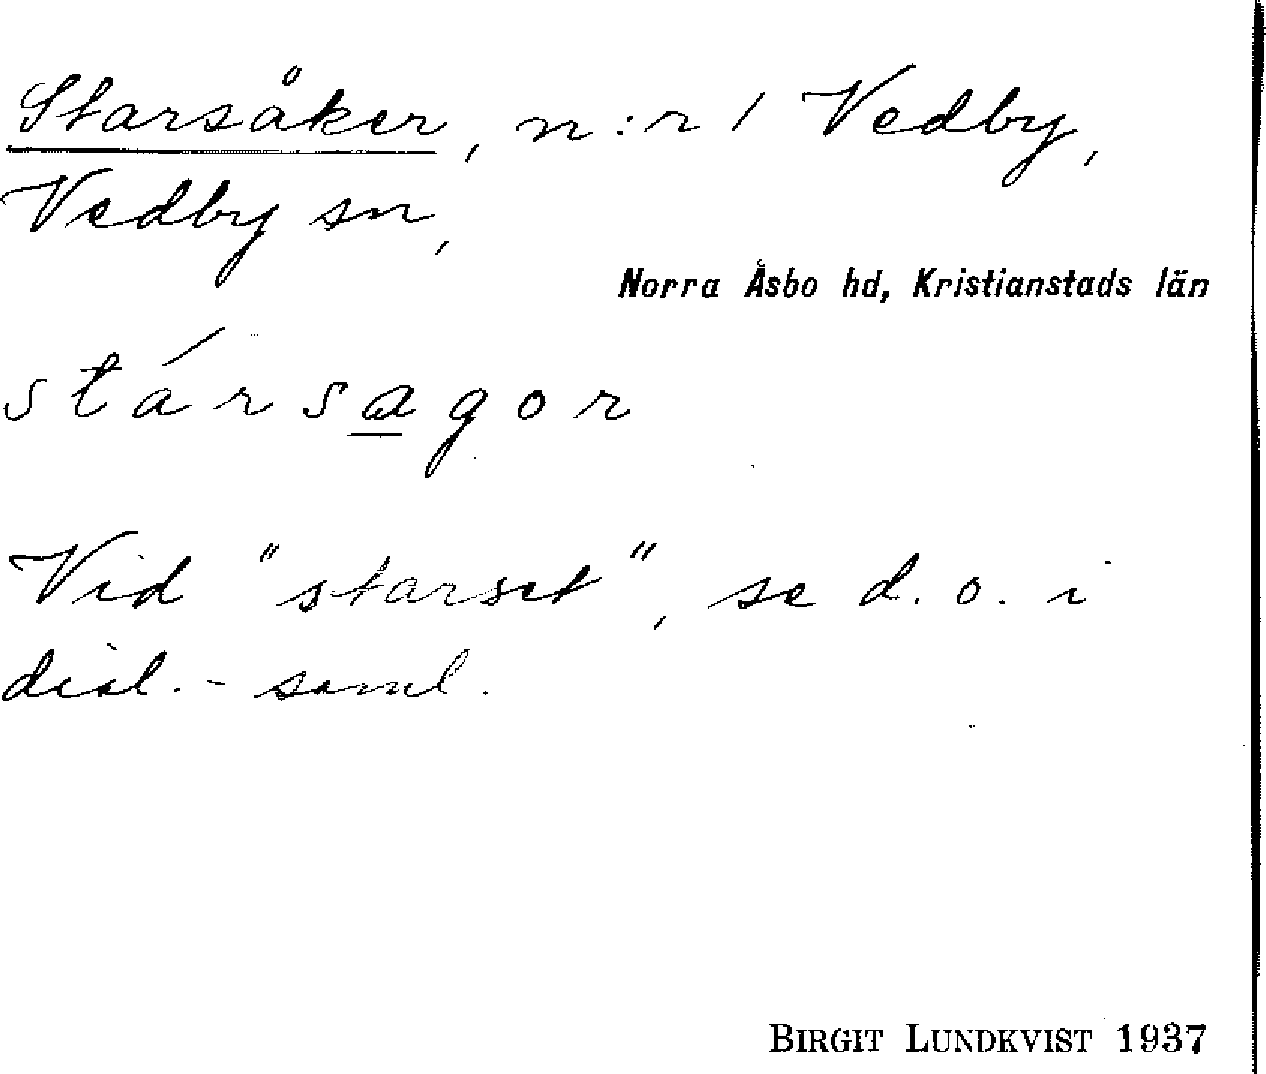 Starsåker, n:r 1 Vedby,
Vedby sn,
Norra Åsbo hd, Kristianstads län
stársagor
Vid "starset", se d. o. i
dial.-saml.
BIRGIT LUNDKVIST 1937